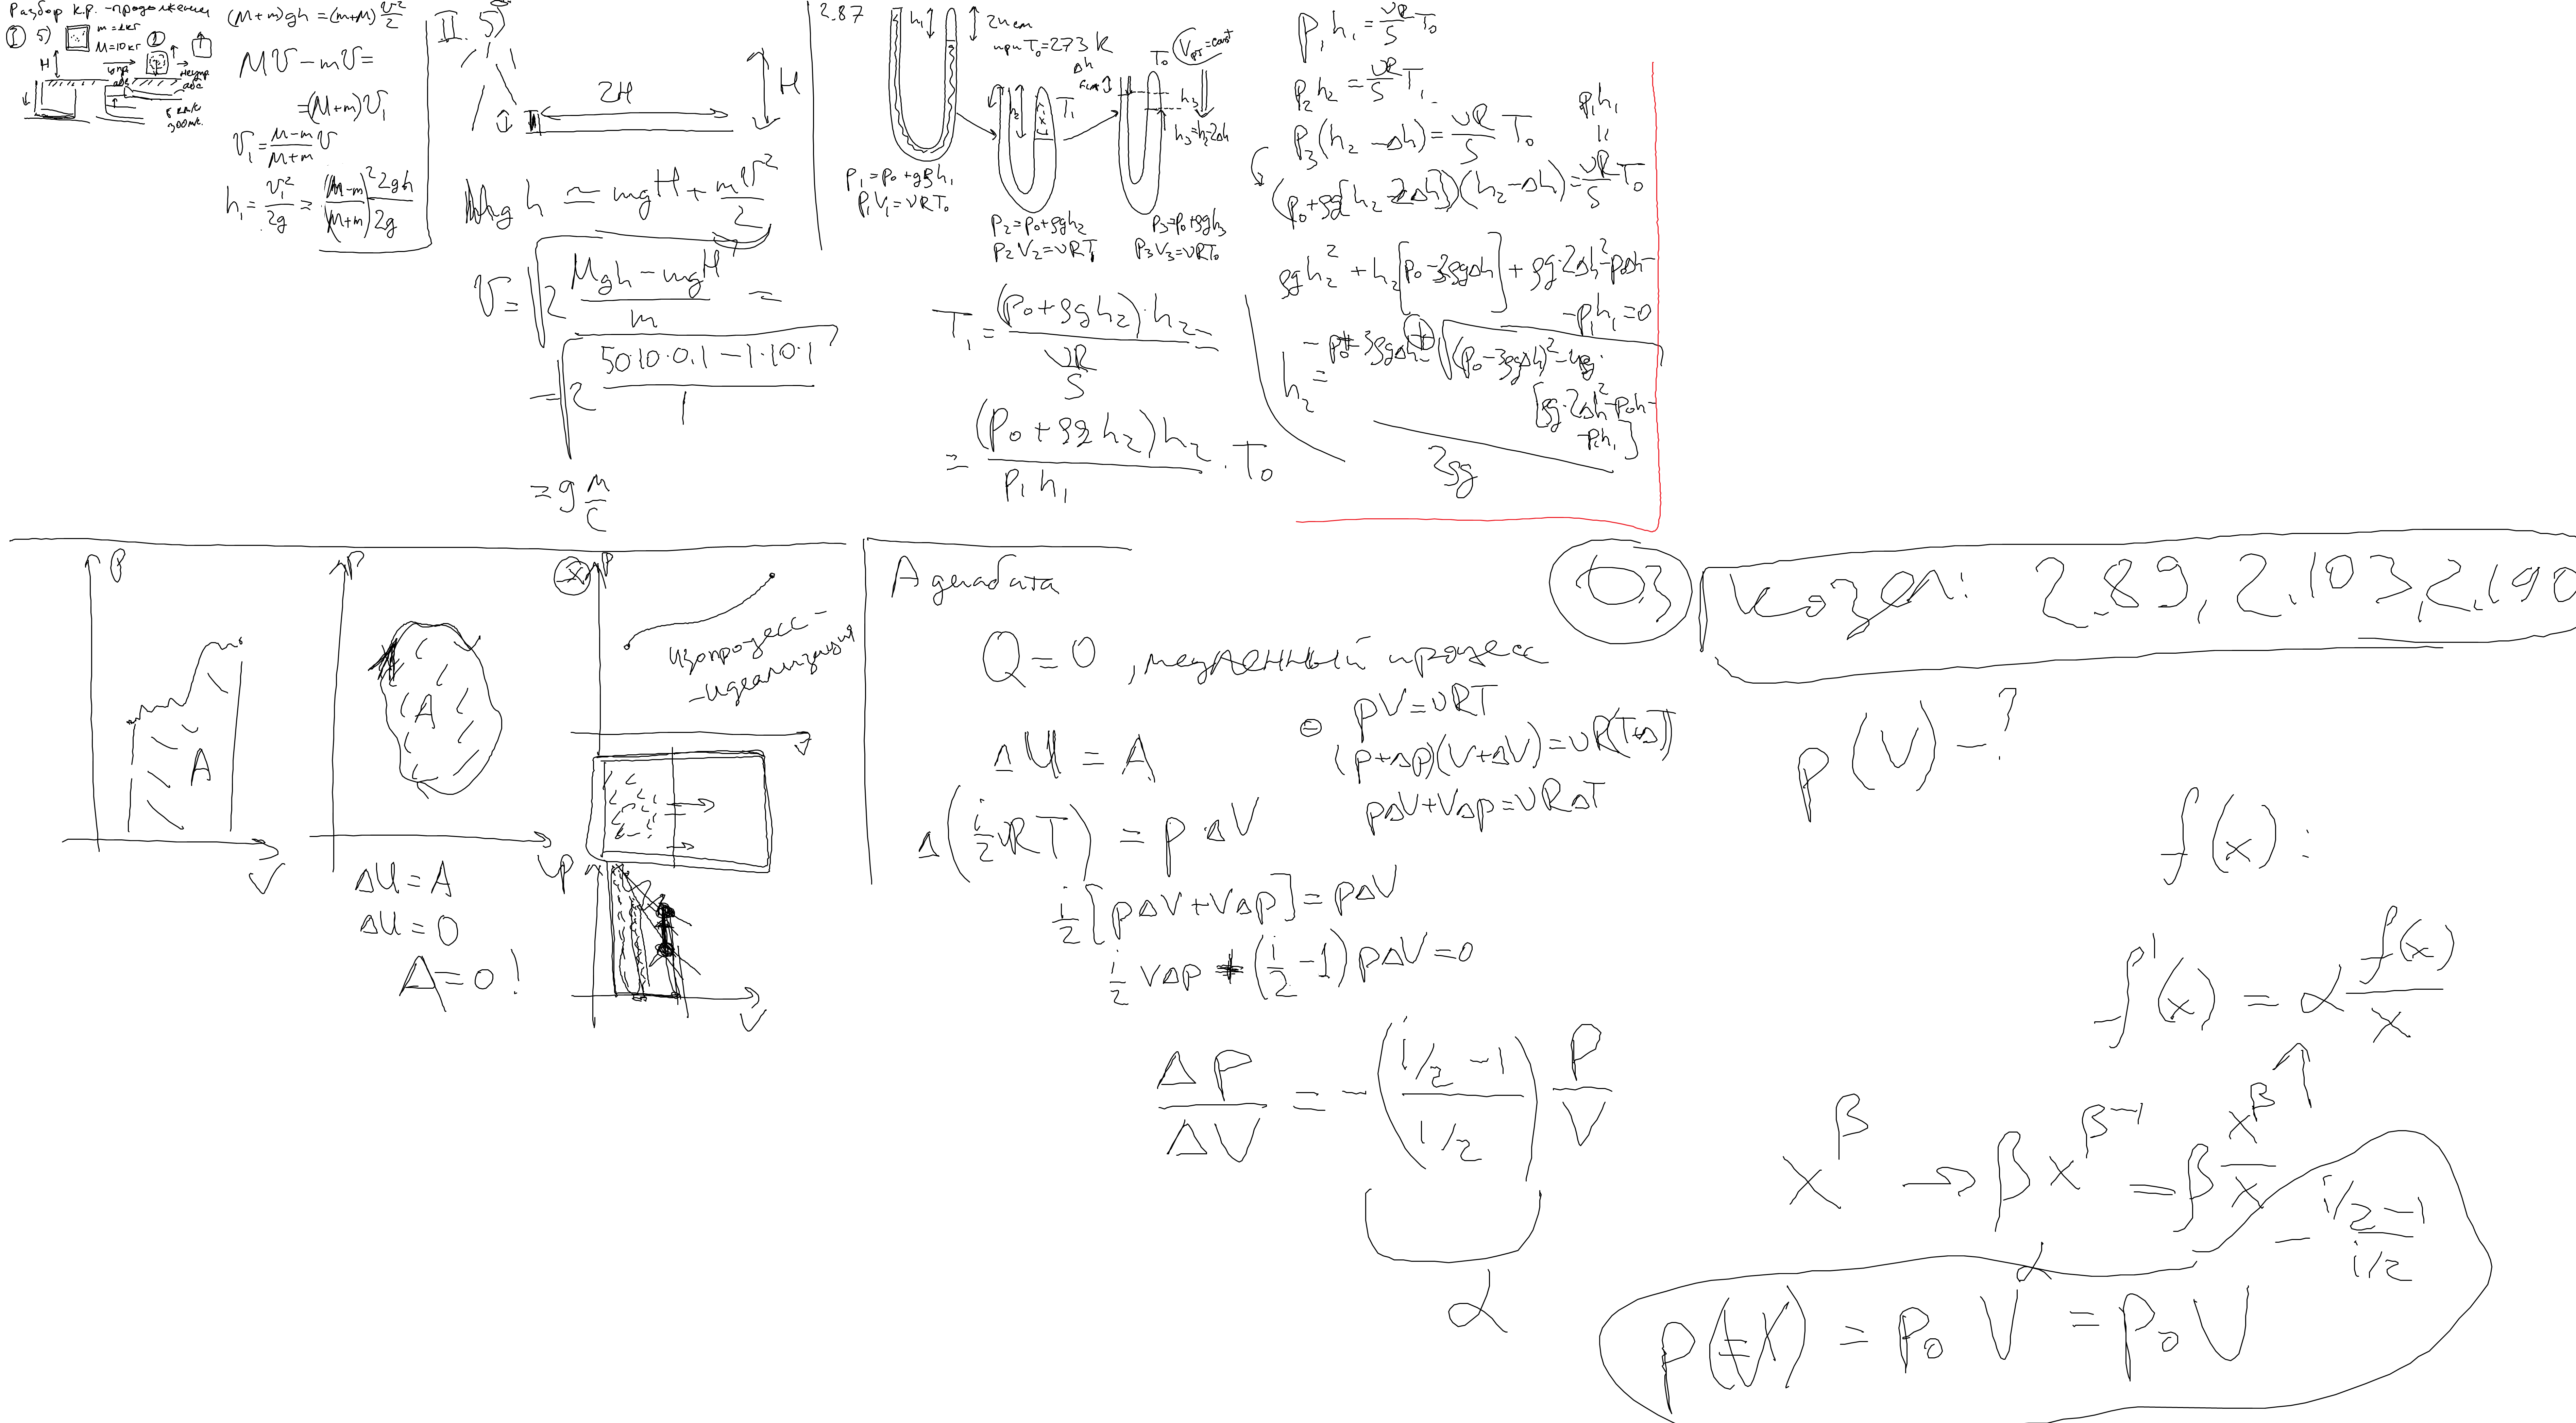 Разбор к.р. - продолжении
I 5)
m = 2кг
M = 10кг
2
H
(M+m)gh = (m+M) v²/2
Mv - mv =
= (M+m)v₁
v₁ = (M-m)/(M+m) v
h₁ = v₁²/2g = (M-m)² 2gh / (M+m)² 2g
II. 5)
2H
H
Mgh = mgH + mv²/2
v = √(2 (Mgh - mgH)/m) =
= √(2 (50·10·0.1 - 1·10·1)/1)
= 9 м/с
2.87
h₁
2h см
при T₀ = 273 K
Δh
T₀
V рт = const
h₂
T₁
h₃
h₃ = h₂ - 2Δh
p₁ = p₀ + gρh₁
p₁V₁ = νRT₀
p₂ = p₀ + ρgh₂
p₂V₂ = νRT₁
p₃ = p₀ + ρgh₃
p₃V₃ = νRT₀
T₁ = (p₀ + ρgh₂)·h₂ / (νR/S) =
= (p₀ + ρgh₂)h₂ / p₁h₁ · T₀
p₁h₁ = νR/S T₀
p₂h₂ = νR/S T₁
p₃(h₂ - Δh) = νR/S T₀
p₁h₁
=
(p₀ + ρg[h₂ - 2Δh])(h₂ - Δh) = νR/S T₀
ρgh₂² + h₂[p₀ - 3ρgΔh] + ρg·2Δh² - p₀Δh -
- p₁h₁ = 0
h₂ = (-p₀ + 3ρgΔh + √((p₀ - 3ρgΔh)² - 4ρg·
[ρg·2Δh² - p₀h -
- p₁h₁]
2ρg
p
A
V
p
A
V
ΔU = A
ΔU = 0
A = 0!
p
изопроцесс -
- идеализация
V
p
V
Адиабата
Q = 0, медленный процесс
ΔU = A
Δ(i/2 νRT) = p ΔV
i/2 [pΔV + VΔp] = pΔV
i/2 VΔp + (i/2 - 1) pΔV = 0
ΔP/ΔV = -((i/2 - 1)/(i/2)) P/V
α
⊖ pV = νRT
(p+Δp)(V+ΔV) = νR(T+ΔT)
pΔV + VΔp = νRΔT
ДЗ
козел: 2.89, 2.103, 2.190
p(V) - ?
f(x):
f'(x) = α f(x)/x
x^β → βx^(β-1) = β x^β/x
p(V) = p₀ V^α = p₀ V^(-(i/2 - 1)/(i/2))